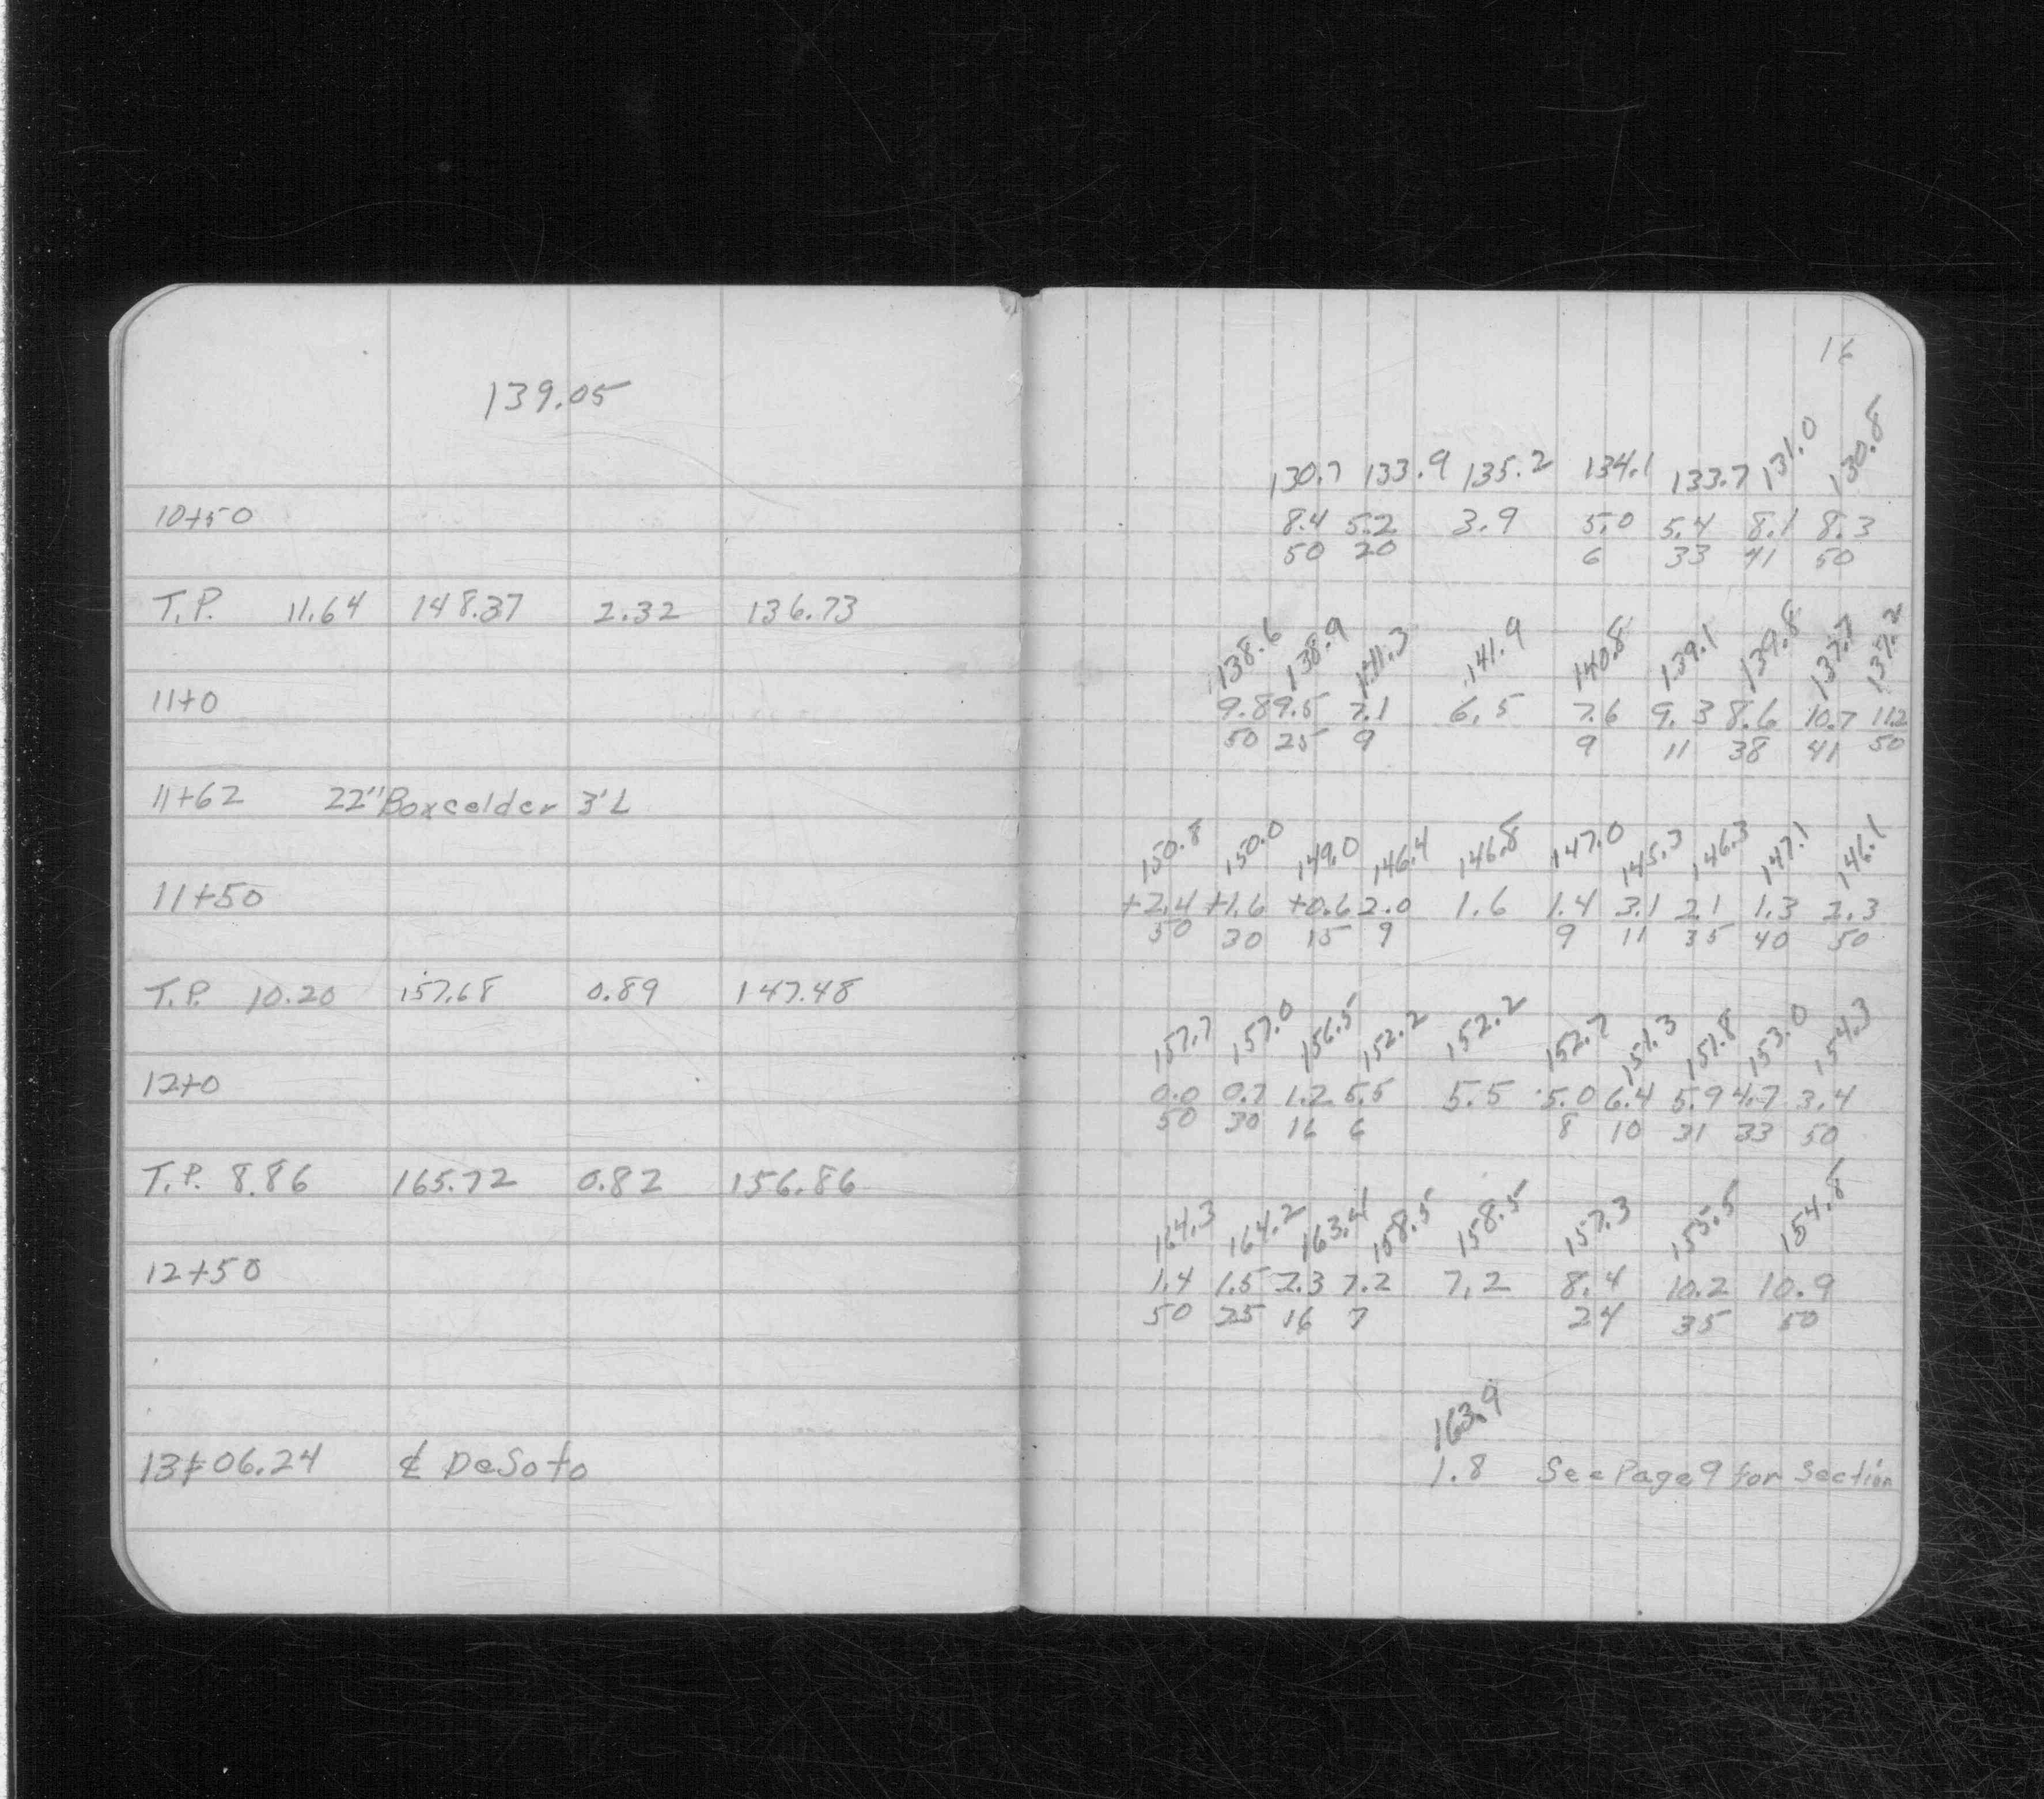 16
139.05
130.7 133.9 135.2 134.1 133.7 131.0 130.8
10+50 8.4 5.2 3.9 5.0 5.4 8.1 8.3
50 20 6 33 41 50
T.P. 11.64 148.37 2.32 136.73
138.6 138.9 141.3 141.9 140.8 139.1 139.8 137.7 137.2
11+0 9.8 9.5 7.1 6.5 7.6 9.3 8.6 10.7 11.2
50 25 9 9 11 38 41 50
11+62 22" Boxcelder 3' L
150.8 150.0 149.0 146.4 146.8 147.0 145.3 146.3 147.1 146.1
11+50 +2.4 +1.6 +0.6 2.0 1.6 1.4 3.1 2.1 1.3 2.3
50 30 15 9 9 11 35 40 50
T.P. 10.20 157.68 0.89 147.48
157.7 157.0 156.5 152.2 152.2 152.7 151.3 151.8 153.0 154.3
12+0 0.0 0.7 1.2 5.5 5.5 5.0 6.4 5.9 4.7 3.4
50 30 16 6 8 10 31 33 50
T.P. 8.86 165.72 0.82 156.86
164.3 164.2 163.4 158.5 158.5 157.3 155.5 154.8
12+50 1.4 1.5 2.3 7.2 7.2 8.4 10.2 10.9
50 25 16 7 24 35 50
163.9
13+06.24 ℄ DeSoto 1.8 See Page 9 for Section